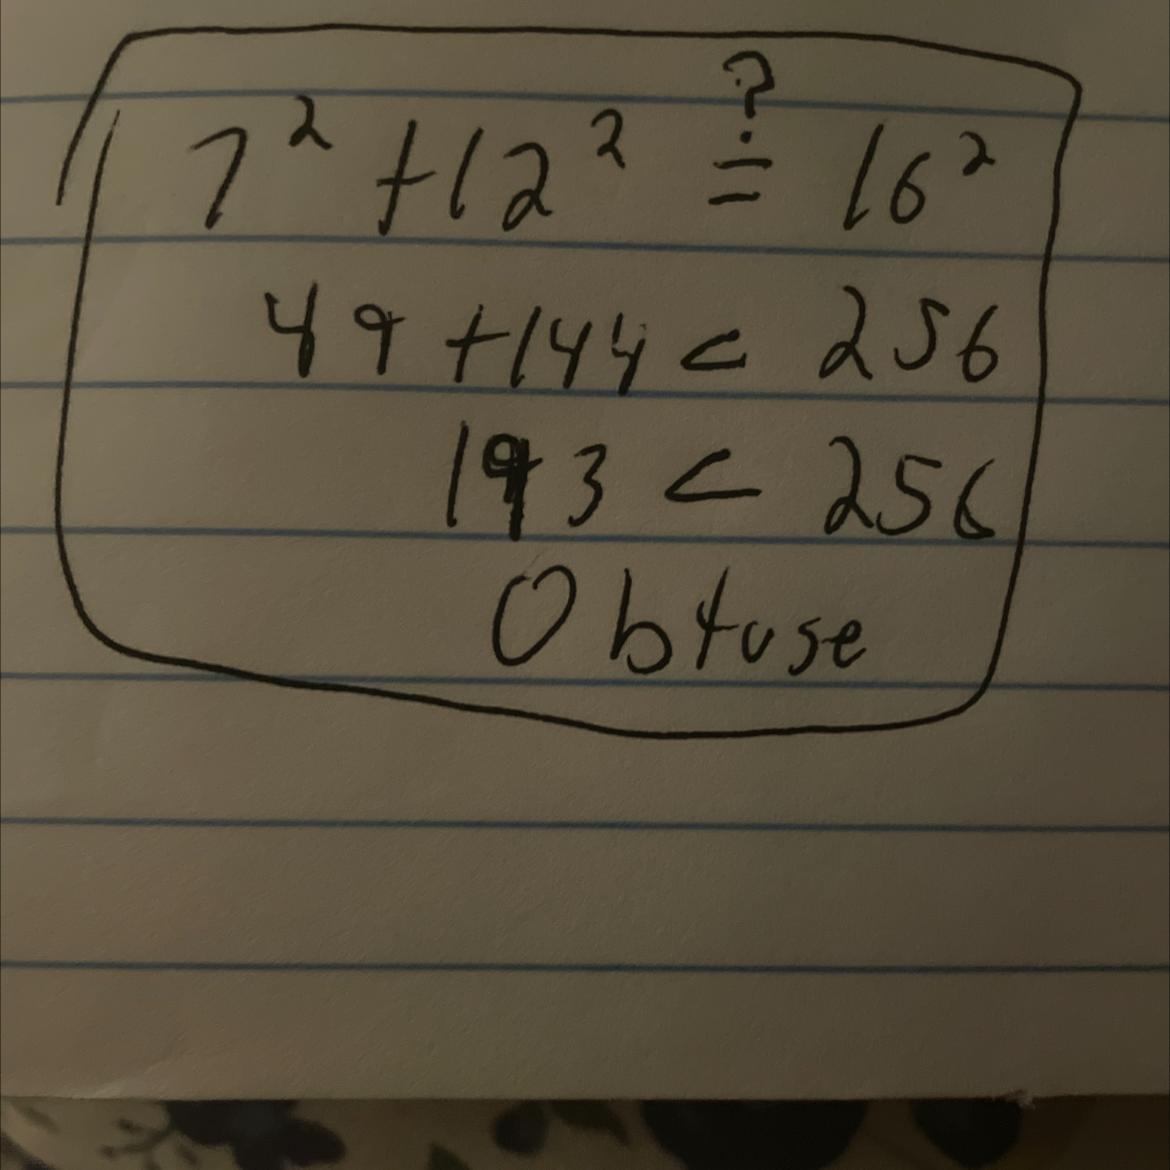 7² + 12² ≟ 16²
49 + 144 < 256
193 < 256
Obtuse